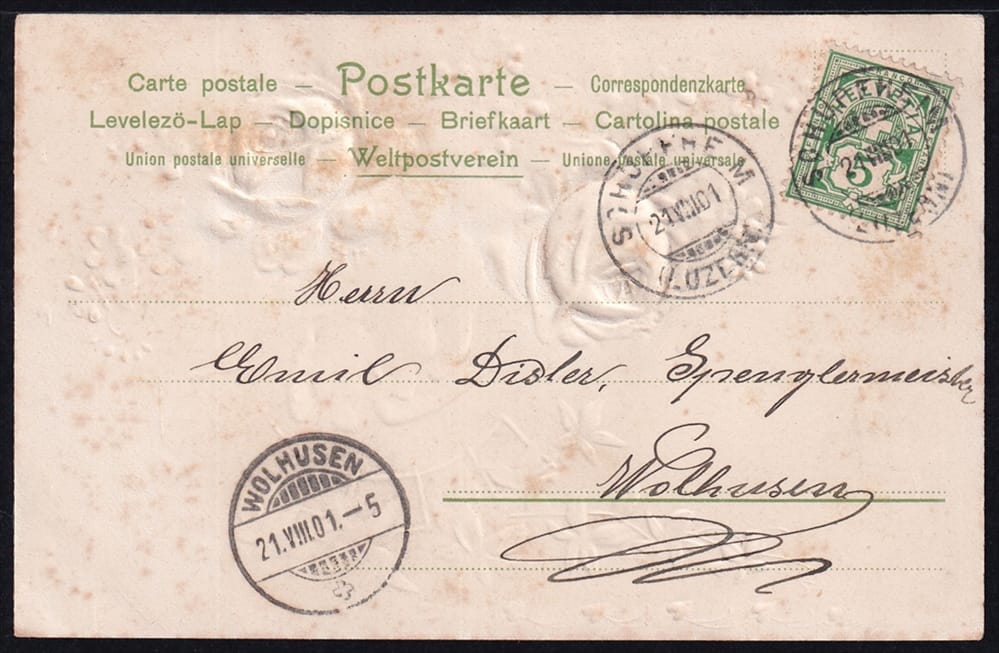 Carte postale — Postkarte — Correspondenzkarte
Levelezö-Lap — Dopisnice — Briefkaart — Cartolina postale
Union postale universelle — Weltpostverein — Unione postale universale
FRANCO
5
21.VIII.01
21.VIII.01
(LUZERN)
Herrn
Emil Disler, Spenglermeister
Wolhusen
WOLHUSEN
21.VIII.01.–5